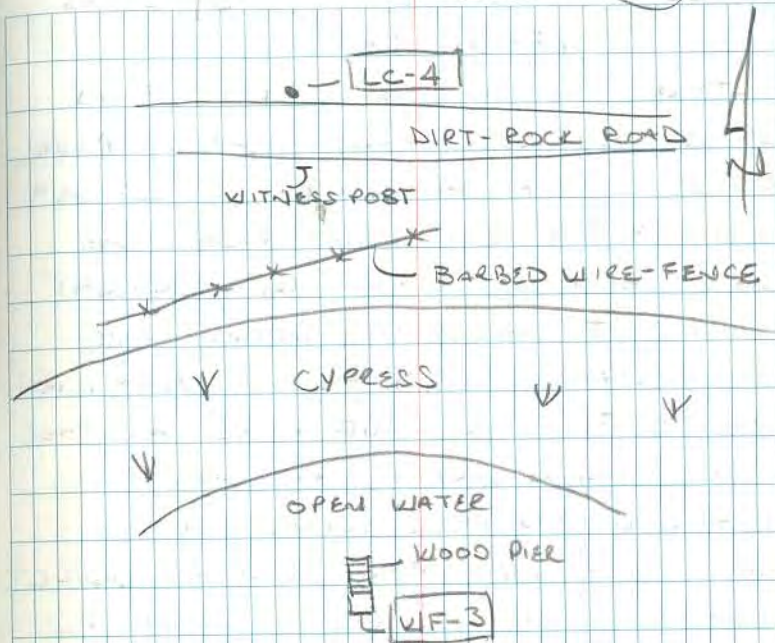 LC-4
DIRT-ROCK ROAD
N
WITNESS POST
BARBED WIRE-FENCE
CYPRESS
OPEN WATER
WOOD PIER
WF-3